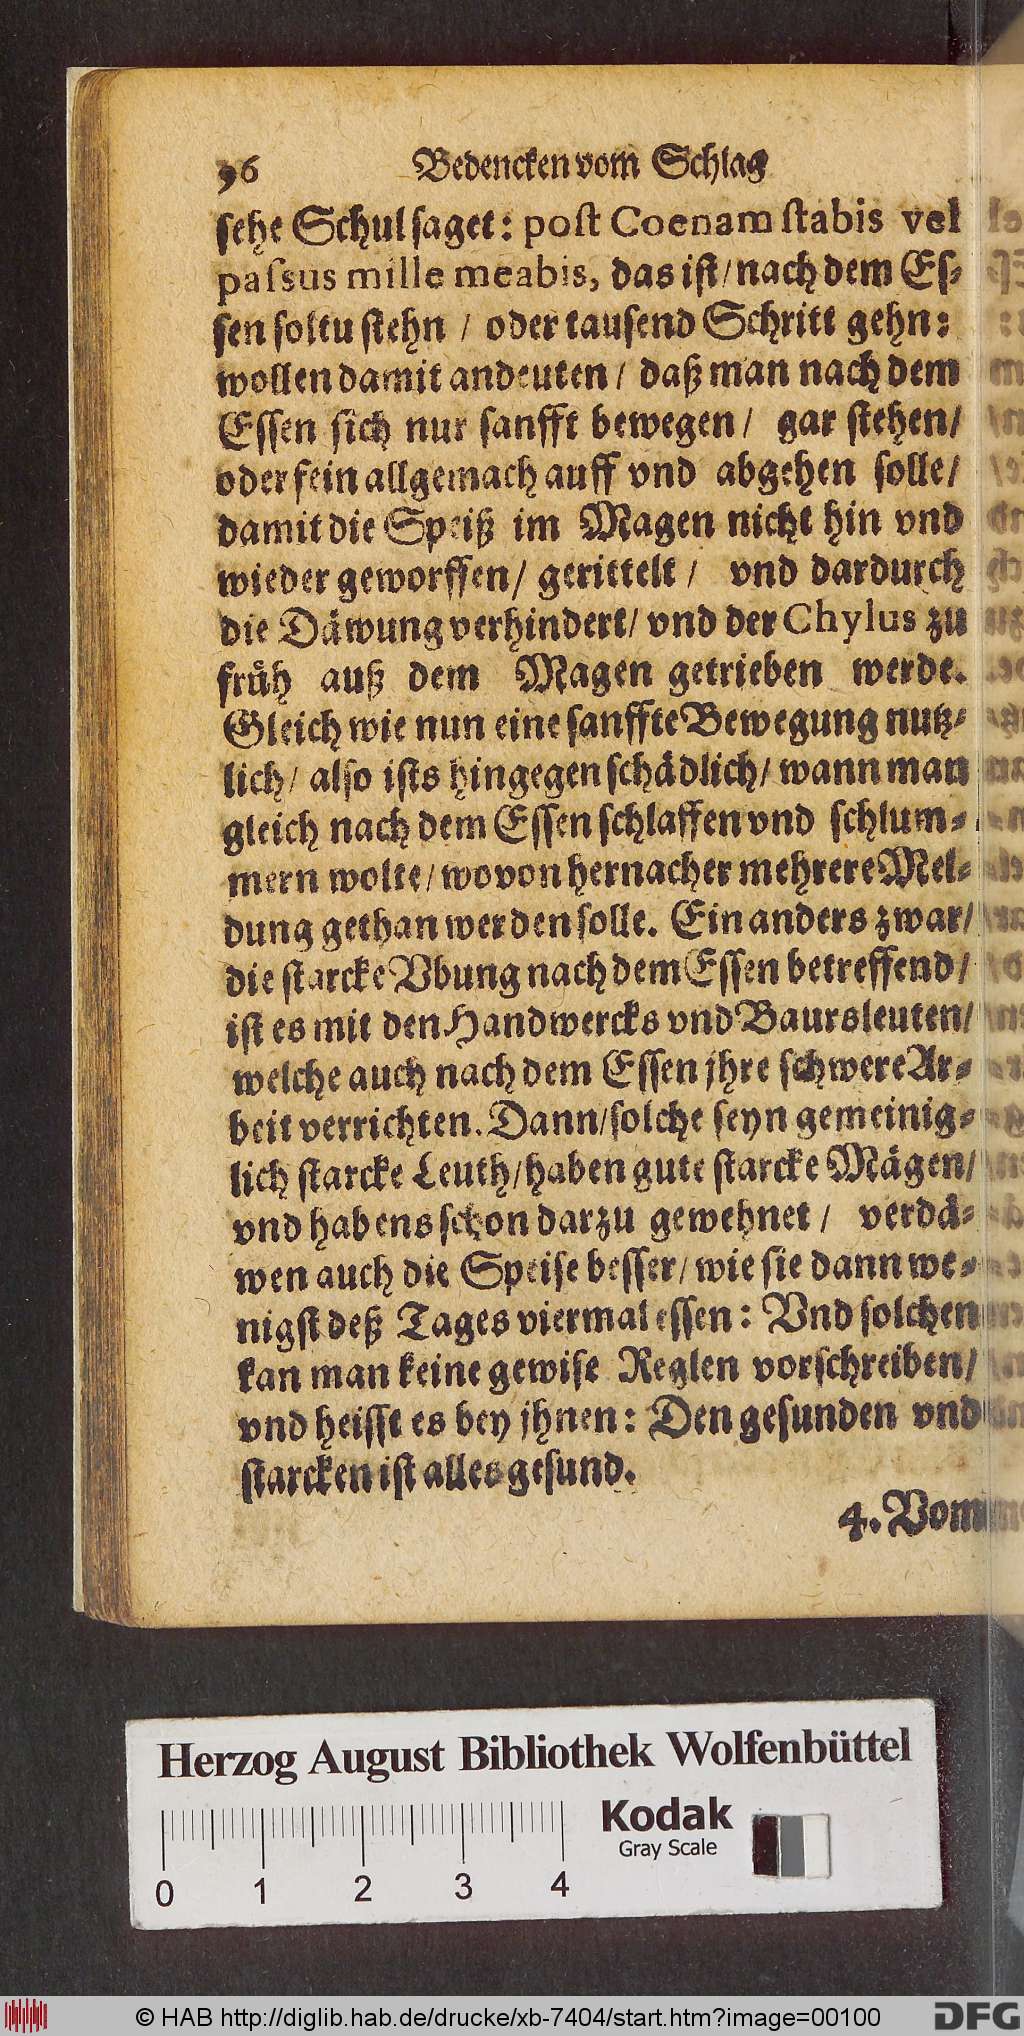 96 Bedencken vom Schlag
sehe Schul saget: post Coenam stabis vel
passus mille meabis, das ist/ nach dem Es-
sen soltu stehn / oder tausend Schritt gehn:
wollen damit andeuten / daß man nach dem
Essen sich nur sanfft bewegen / gar stehen/
oder fein allgemach auff vnd abgehen solle/
damit die Speiß im Magen nicht hin vnd
wieder geworffen/ gerittelt / vnd dardurch
die Däwung verhindert/ vnd der Chylus zu
früh auß dem Magen getrieben werde.
Gleich wie nun eine sanffte Bewegung nutz-
lich/ also ists hingegen schädlich/ wann man
gleich nach dem Essen schlaffen vnd schlum-
mern wolte/ wovon hernacher mehrere Mel-
dung gethan werden solle. Ein anders zwar/
die starcke Vbung nach dem Essen betreffend/
ist es mit den Handwercks vnd Baursleuten/
welche auch nach dem Essen jhre schwere Ar-
beit verrichten. Dann/ solche seyn gemeinig-
lich starcke Leuth/ haben gute starcke Mägen/
vnd habens schon darzu gewehnet / verdä-
wen auch die Speise besser/ wie sie dann we-
nigst deß Tages viermal essen: Vnd solchen
kan man keine gewise Reglen vorschreiben/
vnd heisst es bey jhnen: Den gesunden vnd
starcken ist alles gesund.
4. Vom
Herzog August Bibliothek Wolfenbüttel
Kodak
Gray Scale
0 1 2 3 4
© HAB http://diglib.hab.de/drucke/xb-7404/start.htm?image=00100
DFG